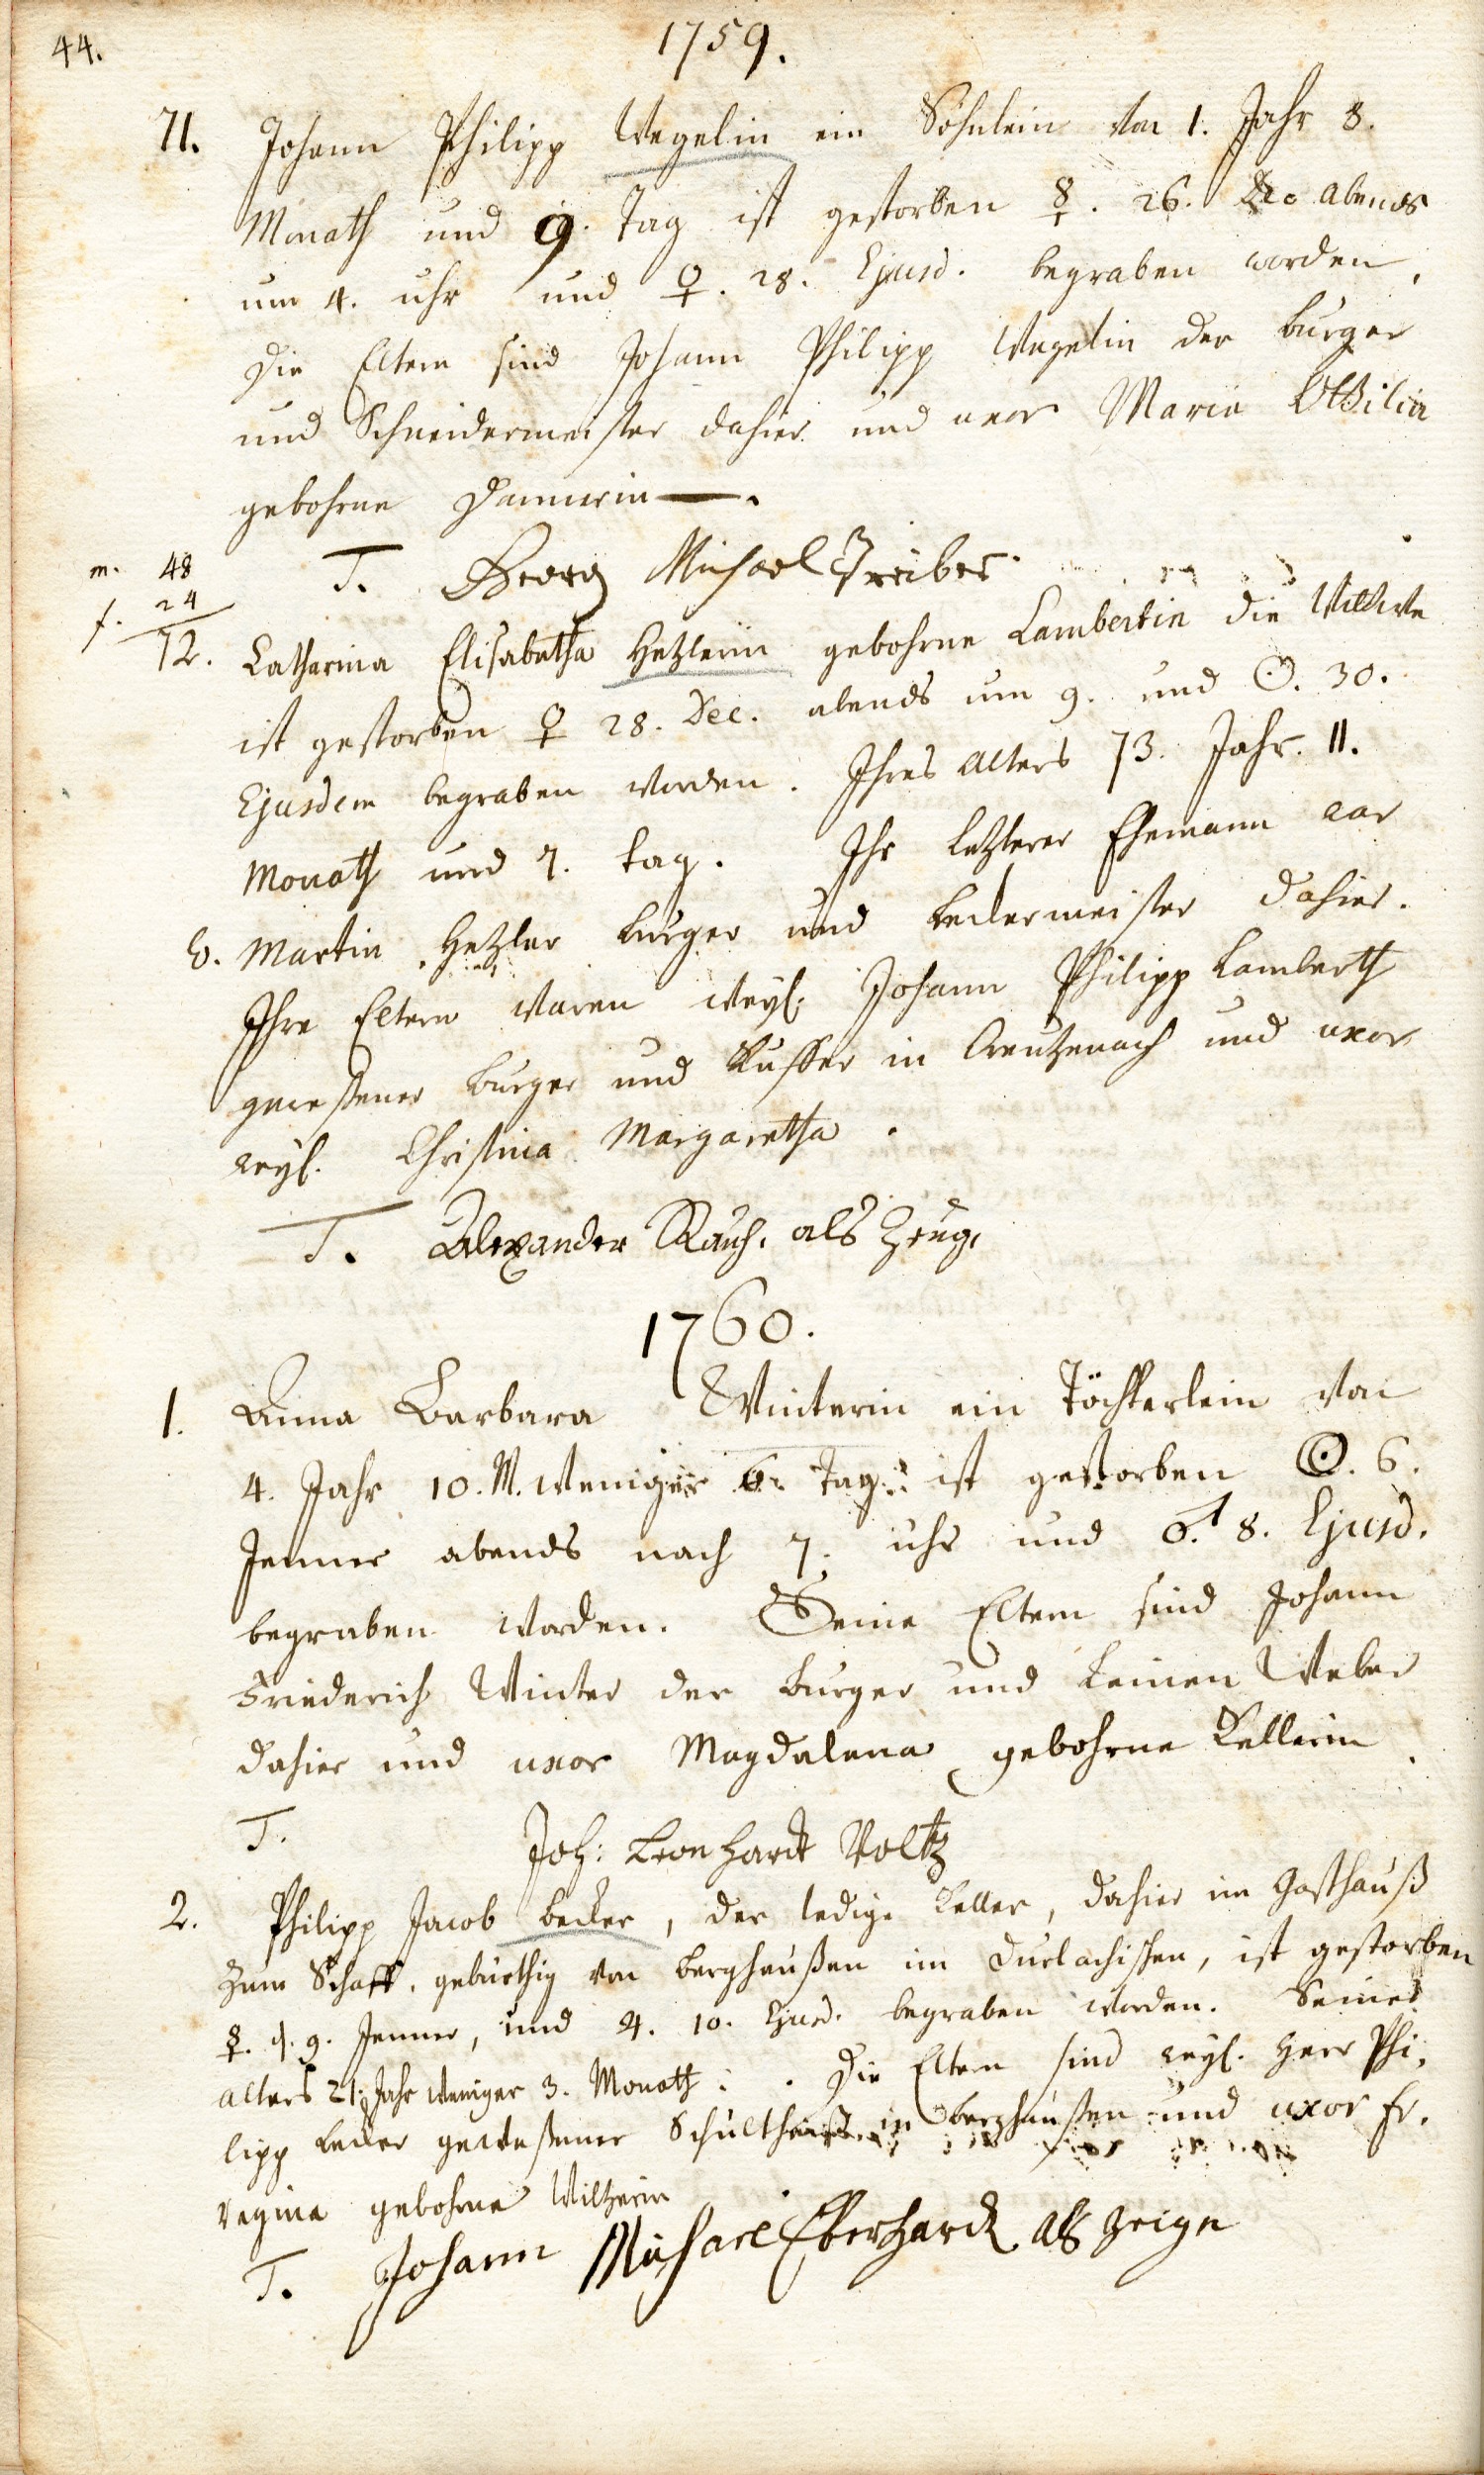 44.
1759.
71. Johann Philipp Wegelin ein Söhnlein von 1. Jahr 8.
Monath und 9. Tag ist gestorben ☿. 26. Dec. abends
um 4. uhr und ♀. 28. Ejusd. begraben worden.
Die Eltern sind Johann Philipp Wegelin der burger
und Schneidermeister dahier und uxor Maria Ottilia
gebohrne
T. Georg Michael Treiber
m. 48
f. 24
72. Catharina Elisabetha Hetzlerin gebohrne Lambertin die Wittwe
ist gestorben ♀ 28. Dec. abends um 9. und ☉. 30.
Ejusdem begraben worden. Ihres alters 73. Jahr. 11.
Monath und 7. tag. Ihr letzterer Ehemann war
Martin Hetzler burger und beckermeister dahier.
Ihre Eltern waren weyl. Johann Philipp Lamberth
geweßener burger und Kuffer in Creutzenach und uxor
weyl. Christina Margaretha.
T. Alexander Rauch. als Zeug.
1760.
1. Anna Barbara Winterin ein Töchterlein von
4. Jahr 10. M. weniger 6. Tag. ist gestorben ☉. 6.
Jenner abends nach 7. uhr und ♂. 8. Ejusd.
begraben worden. Seine Eltern sind Johann
Friederich Winter der burger und Leinen Weber
dahier und uxor Magdalena gebohrne Kellerin.
T. Joh: Leonhardt Voltz
2. Philipp Jacob becker, der ledige Keller, dahier im Gasthauß
zum Schaff. gebürthig von berghaußen im Durlachischen, ist gestorben
☿. d. 9. Jenner, und ♃. 10. Ejusd. begraben worden. Seines
alters 21. Jahr weniger 3. Monath. Die Eltern sind weyl. Herr Phi,
lipp becker geweßener Schultheiß in berghaußen und uxor Fr.
Regina gebohrne Wiltzerin
T. Johann Michael Eberhardt als zeige